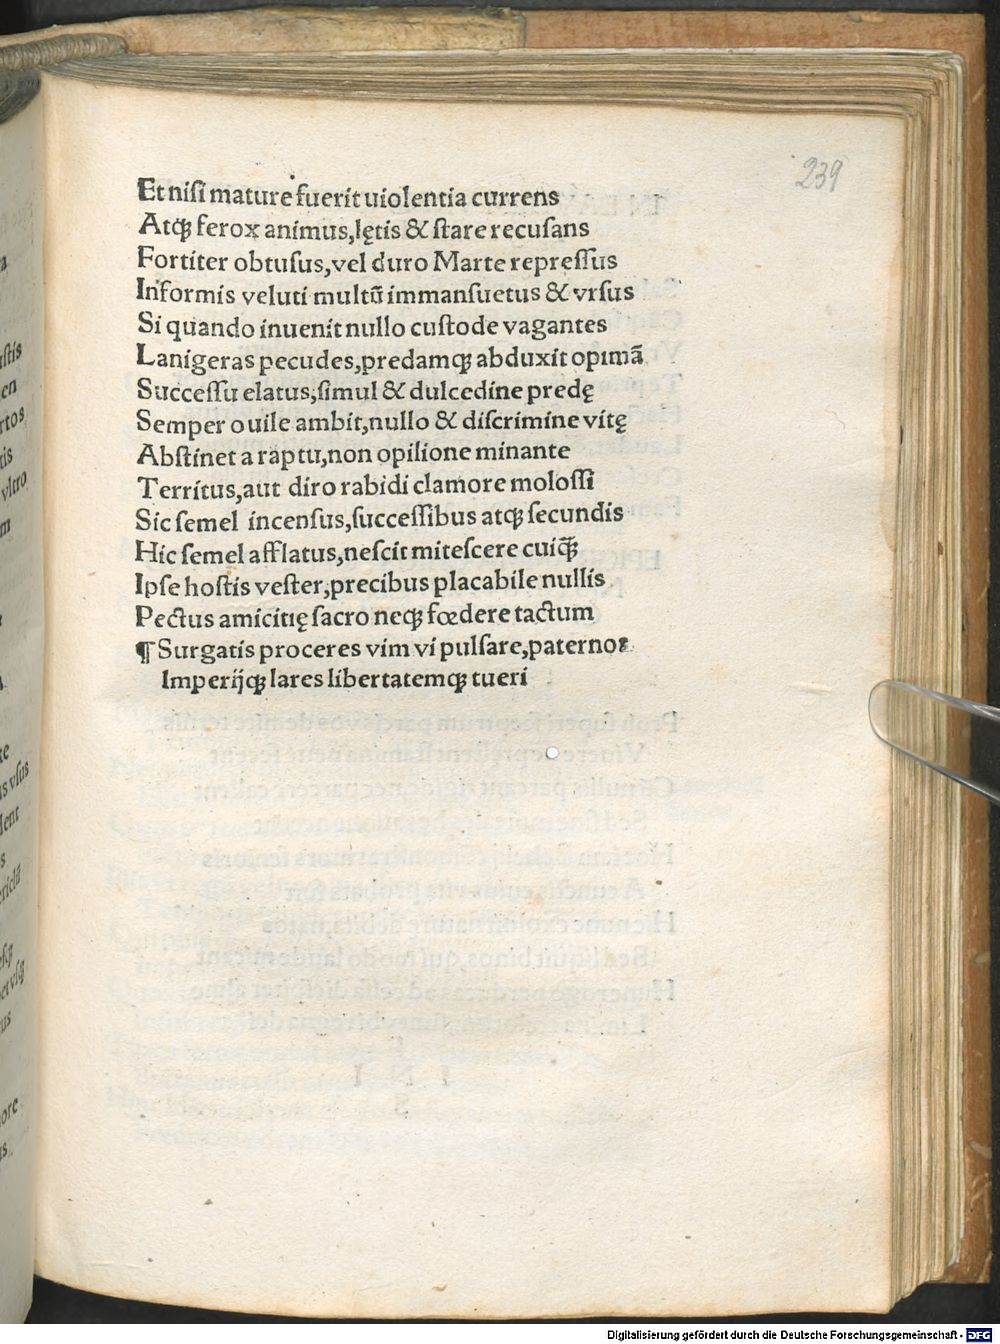 239
Et niſi mature fuerit uiolentia currens
Atqꝫ ferox animus,lętis & ſtare recuſans
Fortiter obtuſus,vel duro Marte repreſſus
Informis veluti multū immanſuetus & vrſus
Si quando inuenit nullo cuſtode vagantes
Lanigeras pecudes,predamqꝫ abduxit opimā
Succeſſu elatus,ſimul & dulcedine predę
Semper ouile ambit,nullo & diſcrimine vitę
Abſtinet a raptu,non opilione minante
Territus,aut diro rabidi clamore moloſſi
Sic ſemel incenſus,ſucceſſibus atqꝫ ſecundis
Hic ſemel afflatus,neſcit miteſcere cuiq̄ꝫ
Ipſe hoſtis veſter,precibus placabile nullis
Pectus amicitię ſacro neqꝫ fœdere tactum
¶ Surgatis proceres vim vi pulſare,paternoꝛ
Imperijqꝫ lares libertatemqꝫ tueri
Digitalisierung gefördert durch die Deutsche Forschungsgemeinschaft - DFG